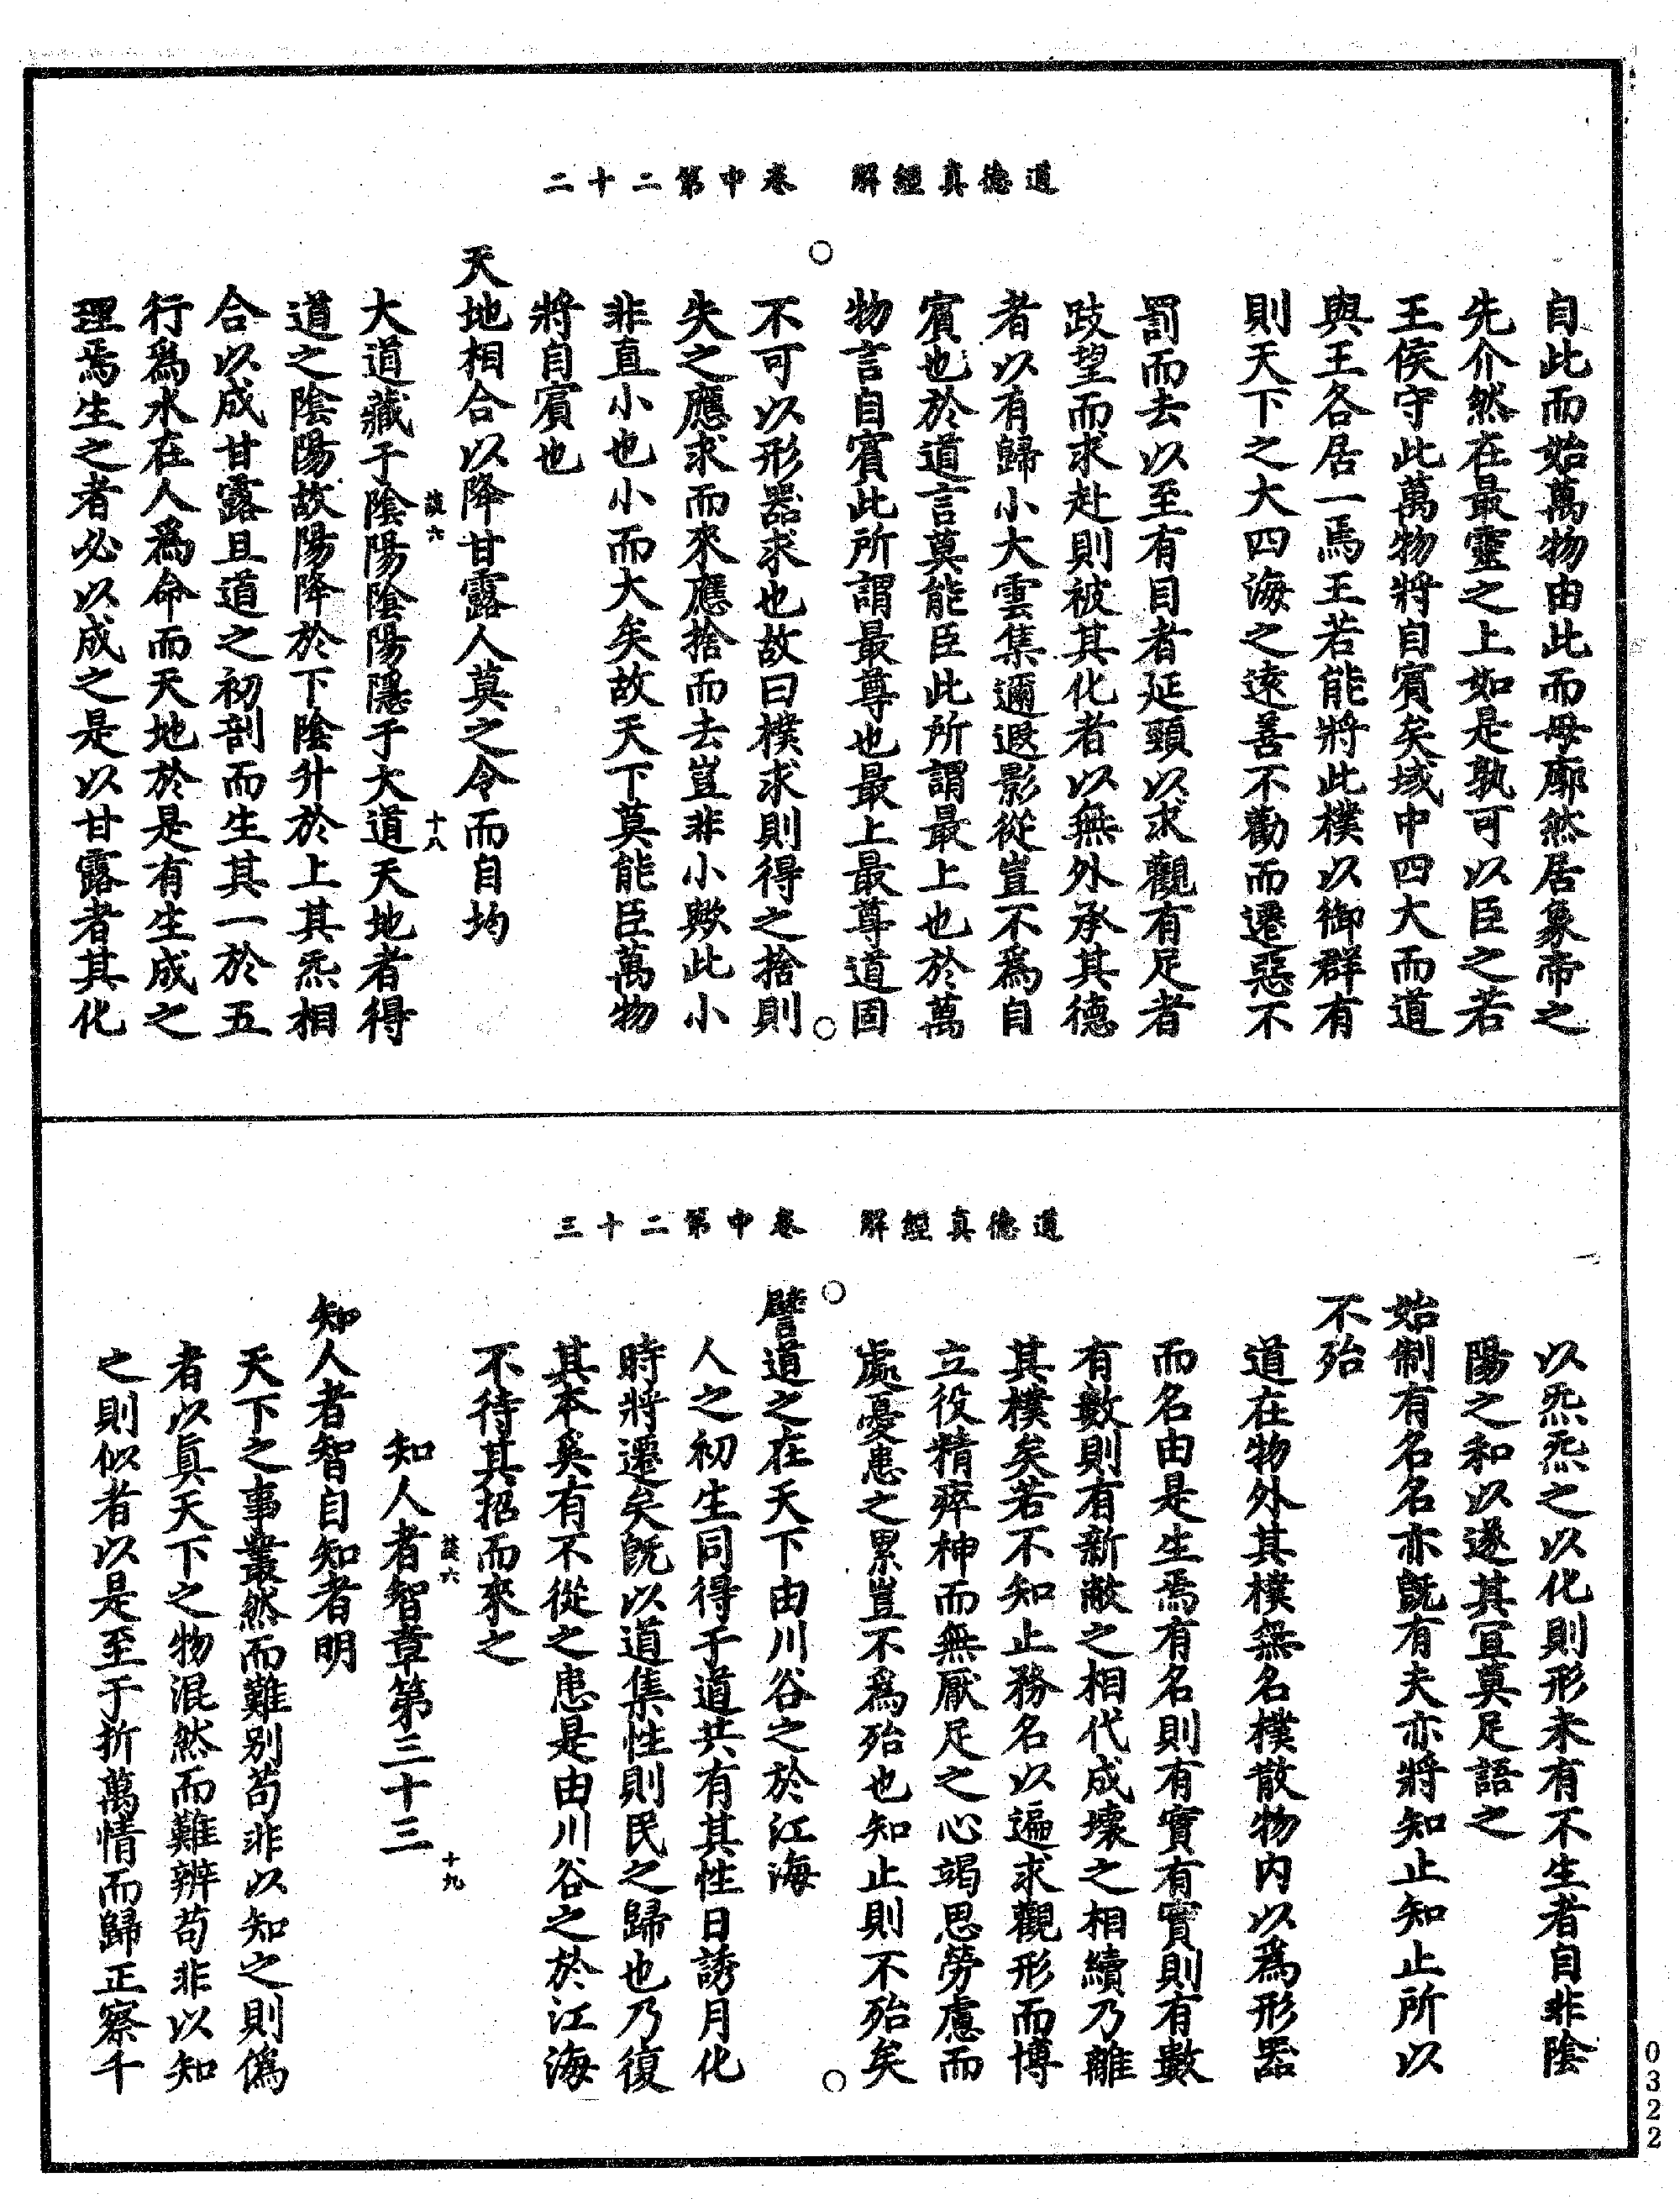 道德真經解　卷中第二十二
自此而始萬物由此而母廓然居象帝之
先介然在最靈之上如是孰可以臣之若
王侯守此萬物將自賓矣域中四大而道
與王各居一焉王若能將此樸以御群有
則天下之大四海之遠善不勸而遷惡不
罰而去以至有目者延頸以求觀有足者
跂望而求赴則被其化者以無外承其德
者以有歸小大雲集邇遐影從豈不爲自
賓也於道言莫能臣此所謂最上也於萬
物言自賓此所謂最尊也最上最尊道固
不可以形器求也故曰樸求則得之捨則
失之應求而來應捨而去豈非小歟此小
非直小也小而大矣故天下莫能臣萬物
將自賓也
天地相合以降甘露人莫之令而自均
談六　十八
大道藏于陰陽陰陽隱于大道天地者得
道之陰陽故陽降於下陰升於上其炁相
合以成甘露且道之初剖而生其一於五
行爲水在人爲命而天地於是有生成之
理焉生之者必以成之是以甘露者其化
道德真經解　卷中第二十三
以炁炁之以化則形未有不生者自非陰
陽之和以遂其宜莫足語之
始制有名名亦旣有夫亦將知止知止所以
不殆
道在物外其樸無名樸散物内以爲形器
而名由是生焉有名則有實有實則有數
有數則有新敝之相代成壞之相續乃離
其樸矣若不知止務名以遍求觀形而博
立役精瘁神而無厭足之心竭思勞慮而
處憂患之累豈不爲殆也知止則不殆矣
譬道之在天下由川谷之於江海
人之初生同得于道共有其性日誘月化
時將遷矣旣以道集性則民之歸也乃復
其本奚有不從之患是由川谷之於江海
不待其招而來之
談六　十九
知人者智章第三十三
知人者智自知者明
天下之事叢然而難别苟非以知之則僞
者以真天下之物混然而難辨苟非以知
之則似者以是至于折萬情而歸正察千
0322